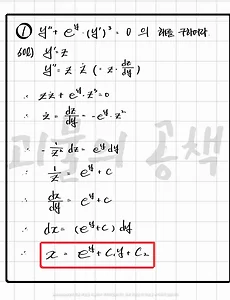 ① y'' + e^y · (y')³ = 0 의 해를 구하여라.
sol) y' = z
y'' = z ż (= z · dz/dy)
∴ zż + e^y · z³ = 0
∴ ż = dz/dy = -e^y · z²
∴ -1/z² dz = e^y dy
∴ 1/z = e^y + C
∴ dx/dy = e^y + C
∴ dx = (e^y + C) dy
∴ x = e^y + C₁y + C₂
괴물의 공책